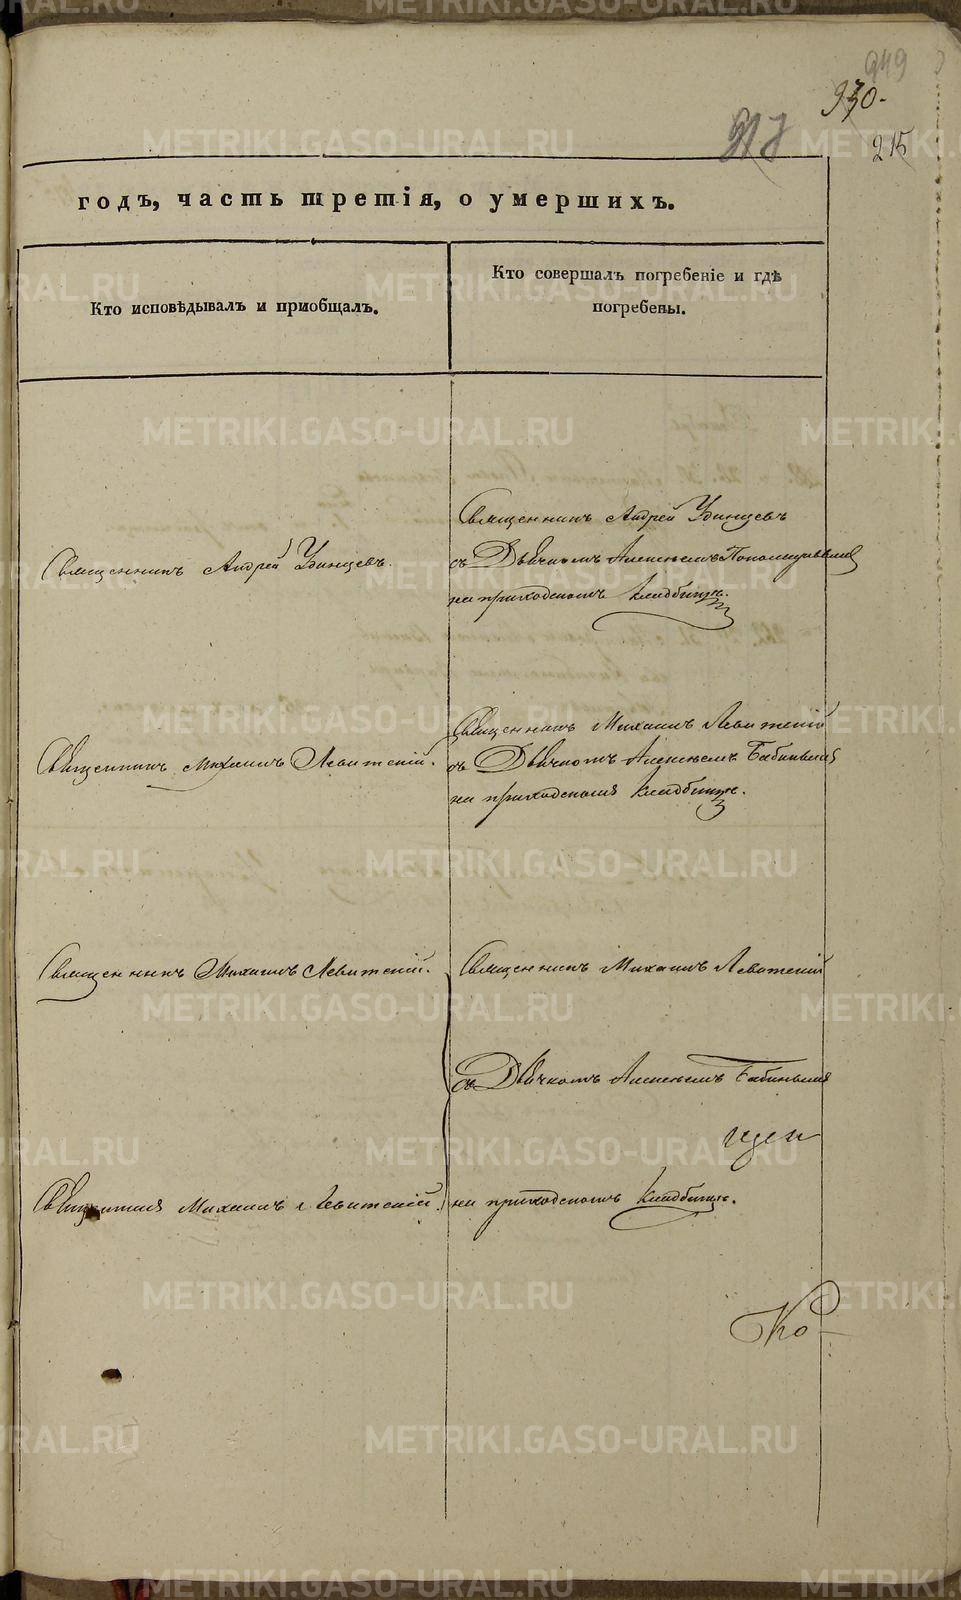 949
930-
217
215
годъ, часть третія, о умершихъ.
Кто исповѣдывалъ и пріобщалъ.
Кто совершалъ погребеніе и гдѣ
погребены.
Священникъ Андрей Удинцевъ
Священникъ Андрей Удинцевъ.
съ Дьячкомъ Алексѣемъ Пономаревымъ
на приходскомъ кладбищѣ.
Священникъ Михаилъ Левитскій
Священникъ Михаилъ Левитскій.
съ Дьячкомъ Алексѣемъ Бабинымъ
на приходскомъ кладбищѣ.
Священникъ Михаилъ Левитскій.
Священникъ Михаилъ Левитскій
съ Дьячкомъ Алексѣемъ Бабинымъ
Священникъ Михаилъ Левитскій.
на приходскомъ кладбищѣ.
METRIKI.GASO-URAL.RU